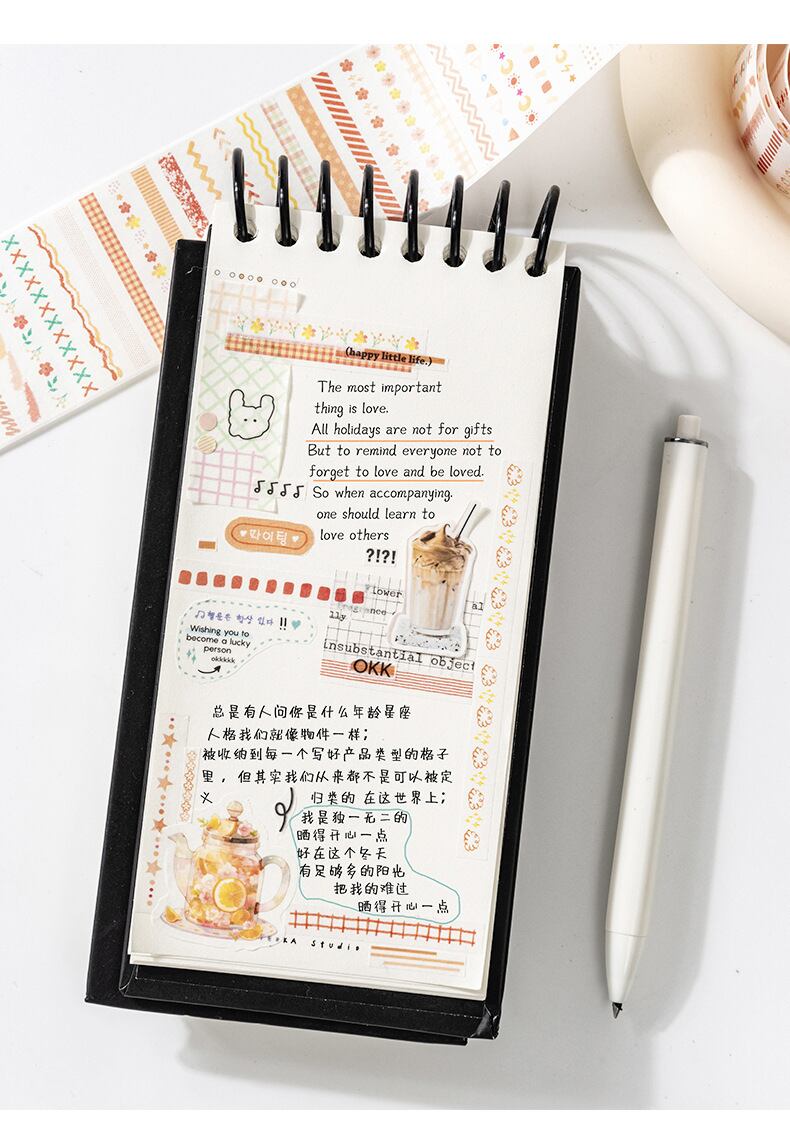 (happy little life.)
The most important
thing is love.
All holidays are not for gifts
But to remind everyone not to
forget to love and be loved.
So when accompanying.
one should learn to
love others
파이팅
?!?!
Flower
fragrance
al
lly
insubstantial object
OKK
행운은 항상 있다 !!
Wishing you to
become a lucky
person
okkkkk
总是有人问你是什么年龄星座
人格我们就像物件一样；
被收纳到每一个写好产品类型的格子
里，但其实我们从来都不是可以被定
义 归类的 在这世界上；
我是独一无二的
晒得开心一点
好在这个冬天
有足够多的阳光
把我的难过
晒得开心一点
Studio